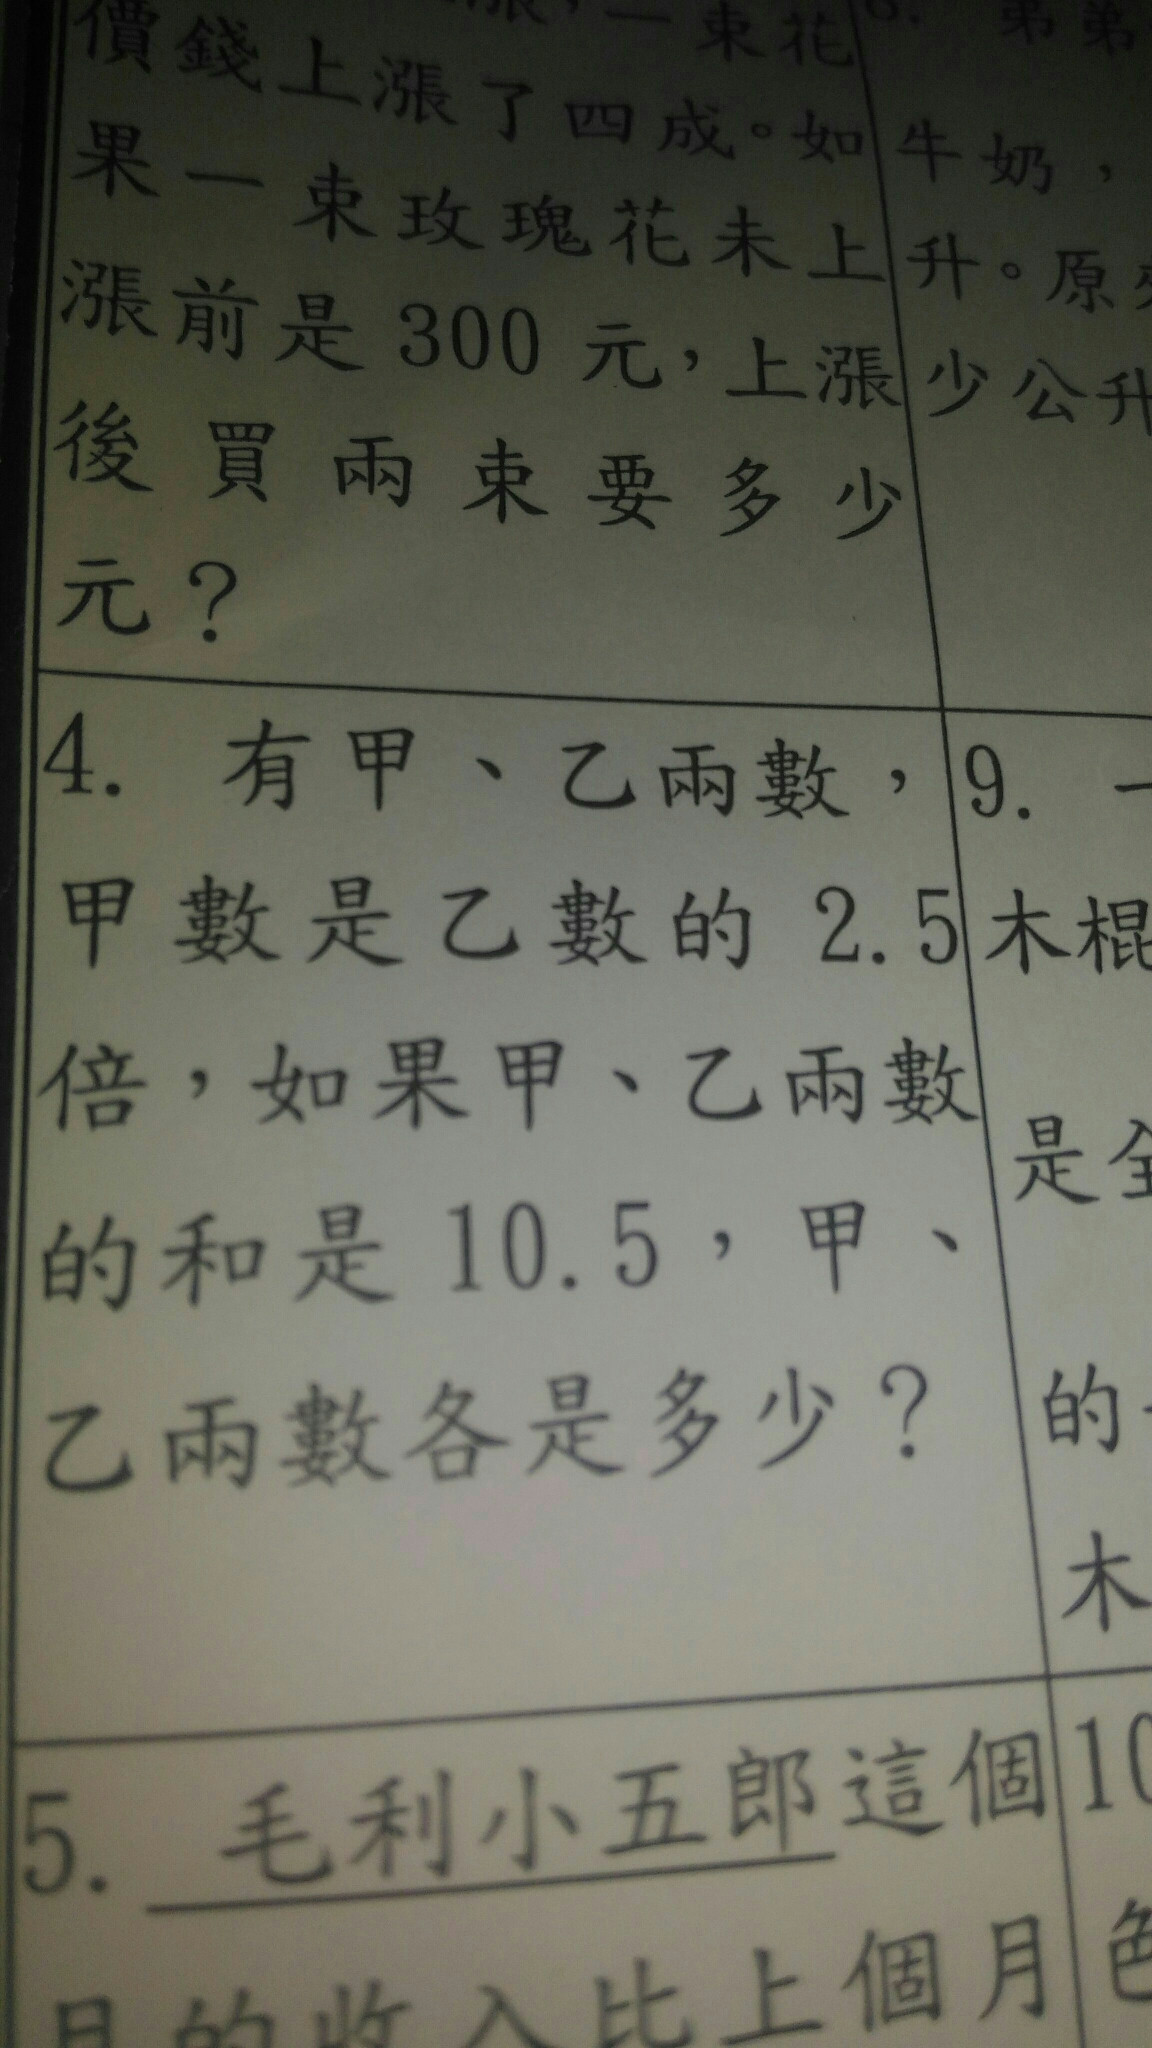 一束花
價錢上漲了四成。如
果一束玫瑰花未上
漲前是 300 元，上漲
後買兩束要多少
元？
4. 有甲、乙兩數，
甲數是乙數的 2.5
倍，如果甲、乙兩數
的和是 10.5，甲、
乙兩數各是多少？
5. 毛利小五郎這個
月的收入比上個月
弟弟
牛奶，
升。原
少公升
9. 一
木棍
是全
的
木
10
色